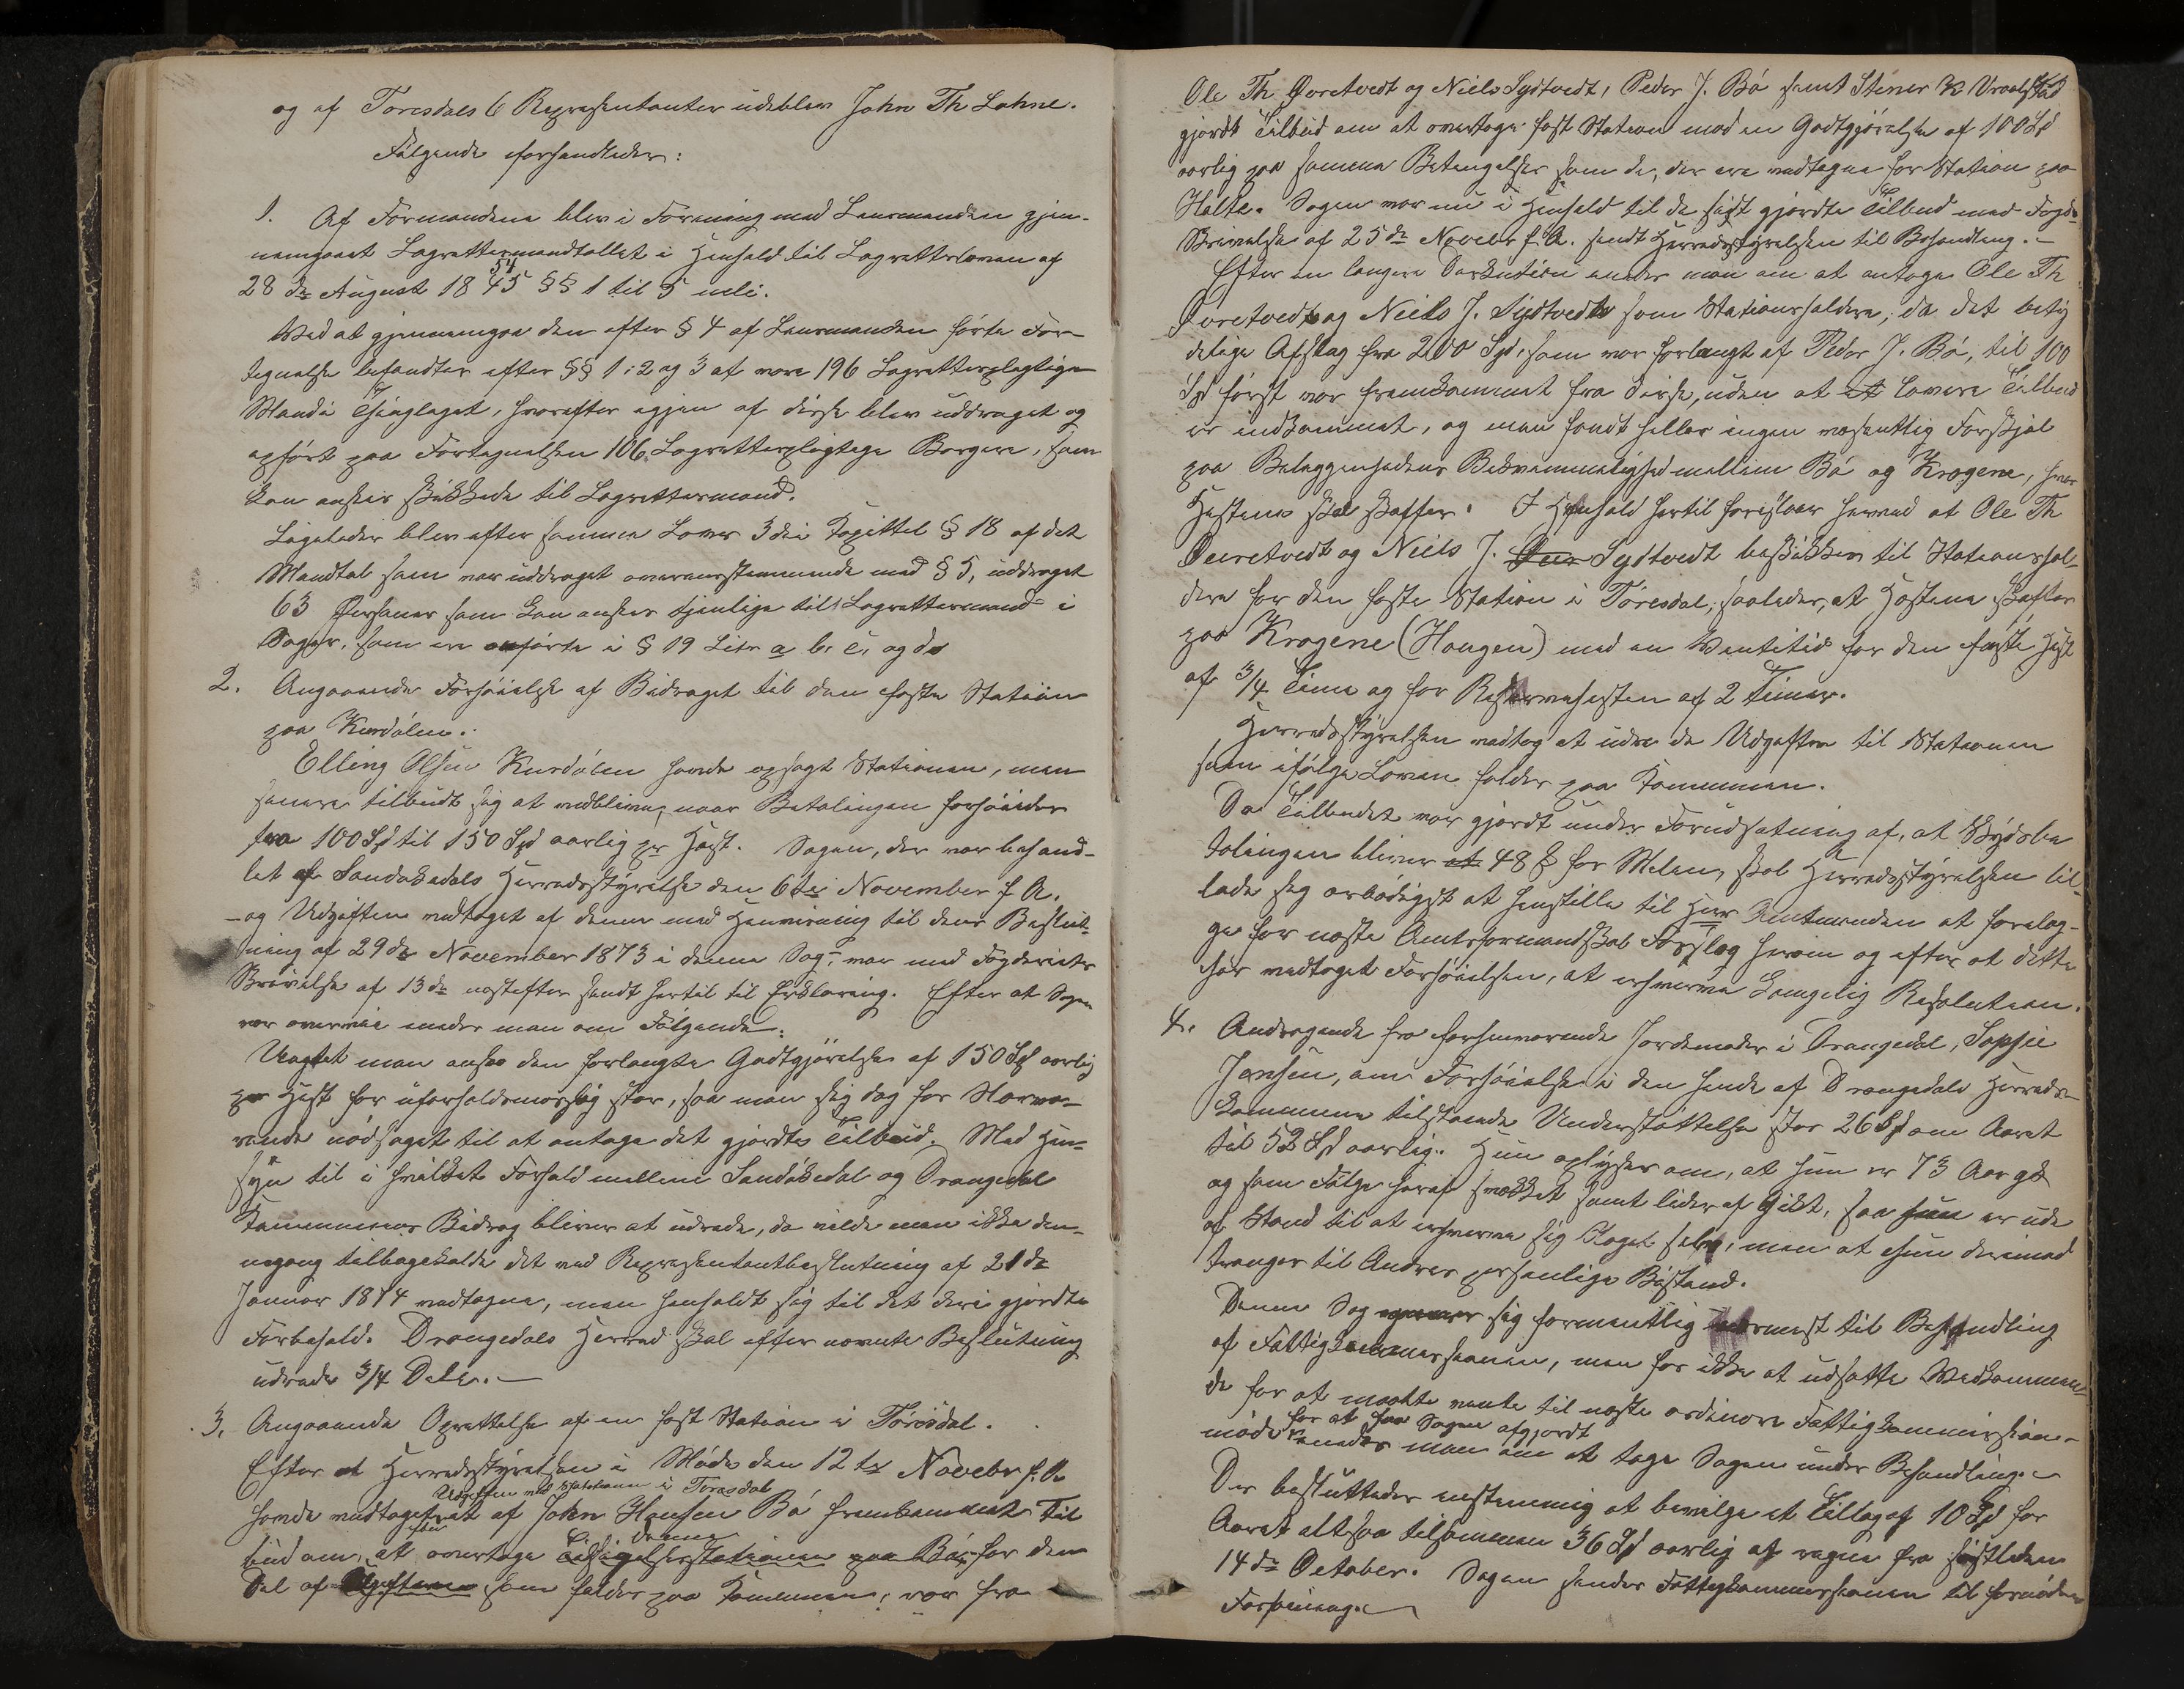 og af Toresdals 6 Repræsentanter udeblev John Th Lohne.
Følgende forhandledes:
1. Af Formændene blev i Forening med Lensmanden gjen-
nemgaaet Lagrettemandtallet i Henhold til Lagretteloven af
28 de August 18 54 45 §§ 1 til 5 incl.
Ved at gjennemgaa den efter § 4 af Lensmanden førte For-
tegnelse befandtes efter §§ 1, 2 og 3 at være 196 Lagrettepligtige
Mænd i Thinglaget, hvorefter igjen af disse blev uddraget og
opført paa Fortegnelsen 106 Lagrettepligtige Borgere, som
kan ansees skikkede til Lagrettemænd.
Ligeledes blev efter samme Lovs 3die Kapittel § 18 af det
Mandtal som var uddraget overensstemmende med § 5, uddraget
63 Personer som kan ansees tjenlige til Lagrettemænd i
Sager, som ere anførte i § 19 Litr a b, c, og d
2. Angaaende Forhøielse af Bidraget til den faste Station
paa Kurdølen.
Elling Olsen Kurdølen havde opsagt Stationen, men
senere tilbudt sig at vedblive, naar Betalingen forhøiedes
fra 100 Spd til 150 Spd aarlig pr Hest. Sagen, der var behand-
let af Sandøkedals Herredsstyrelse den 6te November f. A.
- og Udgiften vedtaget af denne med Henvisning til dens Beslut-
ning af 29de November 1873 i denne Sag -, var med Fogderiets
Skrivelse af 13de næstefter sendt hertil til Erklæring. Efter at Sagen
var overveiet enedes man om Følgende:
Uagtet man ansaa den forlangte Godtgjørelse af 150 Spd aarlig
pr Hest for uforholdsmæssig stor, saa man sig dog for Nærvæ-
rende nødsaget til at antage det gjordte Tilbud. Med Hen-
syn til i hvilket Forhold mellem Sandøkedal og Drangedal
Kommuners Bidrag bliver at udrede, da vilde man ikke den-
negang tilbagekalde det ved Repræsentantbeslutning af 21de
Januar 1874 vedtagne, men henholdt sig til det deri gjordte
Forbehold. Drangedals Herred skal efter nævnte Beslutning
udrede 3/4 Dele. —
3. Angaaende Oprettelse af en fast Station i Toresdal.
Efter at Herredsstyrelsen i Møde den 12te Novebr f. A.
Udgiften ved Stationen i Toresdal
havde vedtaget et af John Hansen Bø fremkommet Til
bud om, at overtage Tilsigelsesstationen paa Bø, for den
Del af Udgifterne som falder paa Kommunen, var fra
Ole Th Øvretvedt og Niels Sydtvedt, Peder J. Bø samt Stener K Vraalstad
gjordt Tilbud om at overtage fast Station mod en Godtgjørelse af 100 Spd
aarlig paa samme Betingelser som de, der ere vedtagne for Station paa
Holte. Sagen var nu i Henhold til de sidst gjordte Tilbud med Fogd-
Skrivelse af 25de Novebr f. A. sendt Herredsstyrelsen til Behandling. —
Efter en længere Diskution enedes man om at antage Ole Th
Øvretvedt og Niels J. Sydtvedt som Stationsholdere, da det bety
delige Afslag fra 200 Spd, som var forlangt af Peder J. Bø, til 100
Spd først var fremkommet fra disse, uden at et lavere Tilbud
er indkommet, og man fandt heller ingen væsentlig Forskjæl
paa Beliggenhedens Bekvemmelighed mellem Bø og Krogene, hvor
Hestene skal skaffes. I Henhold hertil foreslaaes herved at Ole Th
Øvretvedt og Niels J. Øvr Sydtvedt beskikkes til Stationshol-
dere for den faste Station i Toresdal, saaledes, at Hestene skaffes
paa Krogene (Haugen) med en Ventetid for den faste Hest
af 3/4 Time og for Reservehesten af 2 Timer.
Herredsstyrelsen vedtog at udrede de Udgifter til Stationen
som ifølge Loven falder paa Kommunen.
Da Tilbudet var gjordt under Forudsætning af, at Skydsbe
talingen bliver at 48 ß for Milen, skal Herredsstyrelsen til-
lade sig ærbødigst at henstille til Herr Amtmanden at forelæg-
ge for næste Amtsformandskab Forslag herom og efter at dette
har vedtaget Forhøielsen, at erhverve kongelig Resolution.
4. Andragende fra forhenværende Jordemoder i Drangedal, Sophie
Jensen, om Forhøielse i den hende af Drangedals Herreds-
kommune tilstaaede Understøttelse stor 26 Spd om Aaret
til 52 Spd aarlig. Hun oplyser om, at hun er 73 Aar gl
og som Følge heraf svækket samt lider af Gikt, saa hun er ude
af Stand til at erhverve sig Noget selv, men at hun derimod
trænger til Andres personlige Bistand.
Denne Sag egner sig formentlig nærmest til Behandling
af Fattigkommissionen, men for ikke at udsætte Vedkommen-
de for at maatte vente til næste ordinære Fattigkommissions-
for at faa Sagen afgjordt
møde enedes man om at tage Sagen under Behandling. —
Der besluttedes enstemmig at bevilge et Tillæg af 10 Spd for
Aaret altsaa tilsammen 36 Spd aarlig at regne fra sidstleden
14de October. Sagen sendes Fattigkommissionen til fornøden
Føiening.